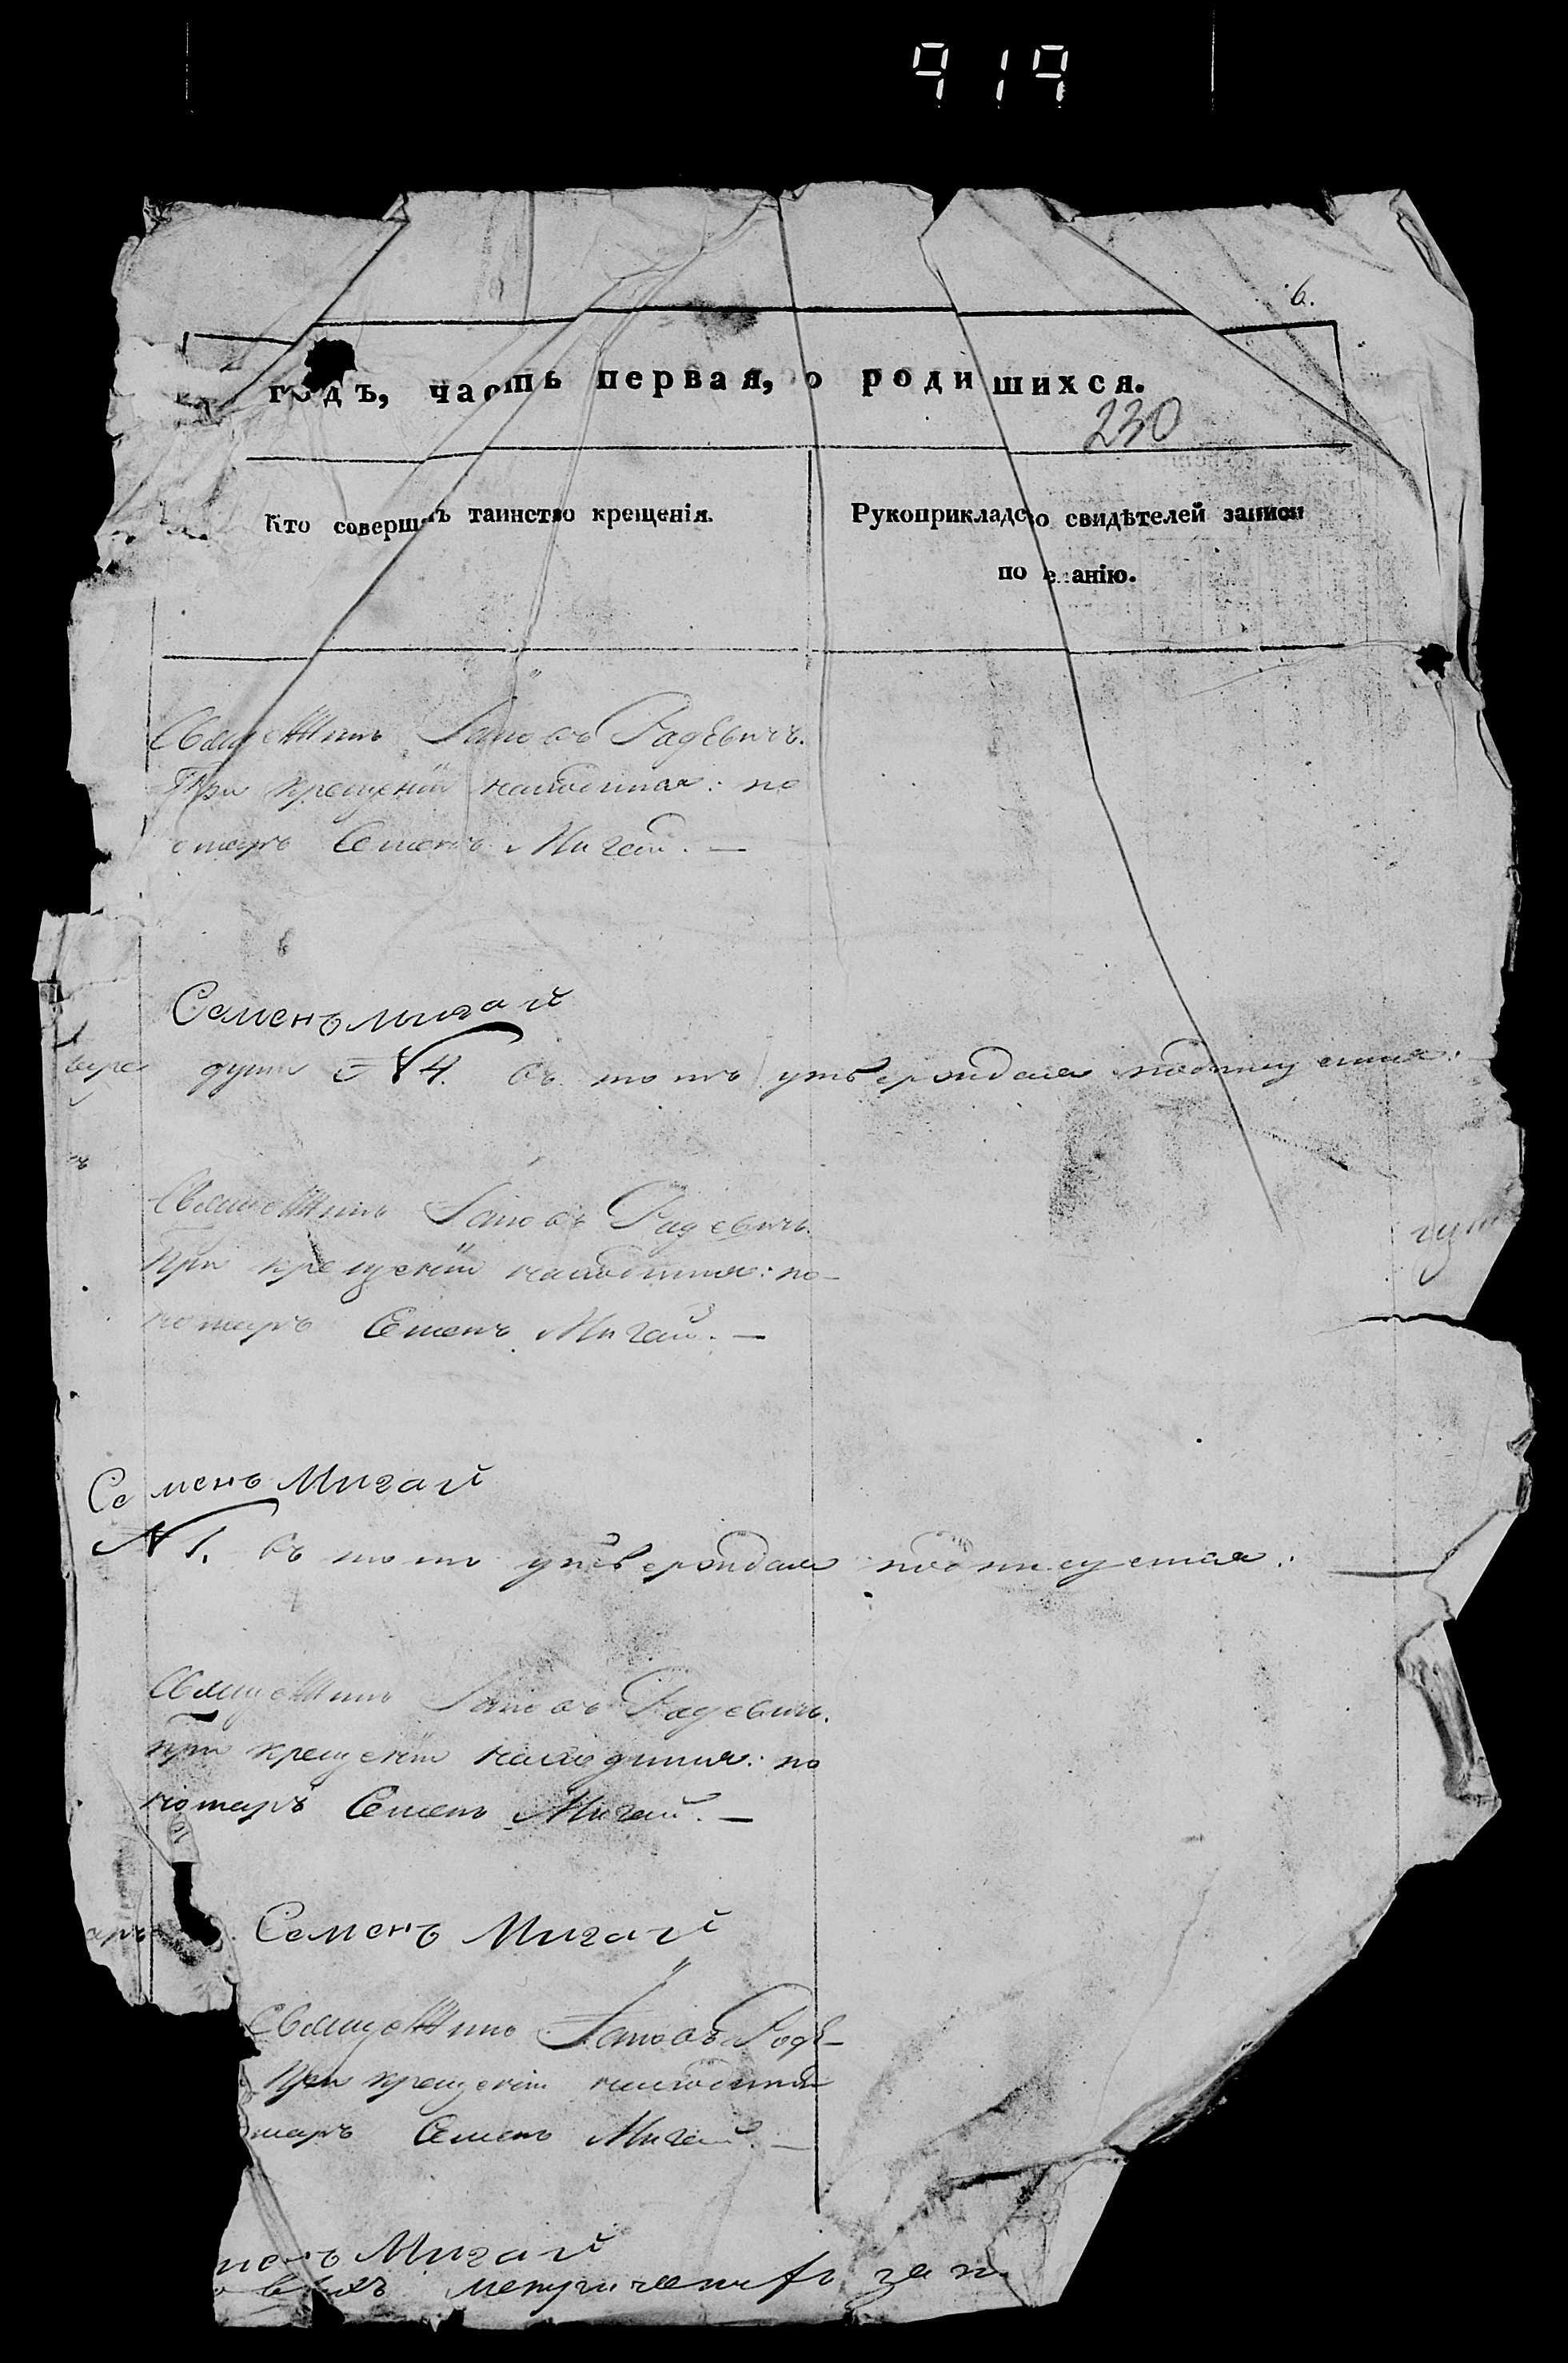 919
6.
годъ, часть первая, о родишихся.
230
Кто совершалъ таинство крещенія.
Рукоприкладство свидѣтелей записи
по анію.
Іаковъ Радевичъ.
При крещеніи находился: по
Семенъ Мигай. —
Семенъ Мигай
души № 4. въ томъ утверждаю подписуемся:
Іаковъ Радевичъ.
При крещеніи находился: по-
номарь Семенъ Мигай. —
Семенъ Мигай
№ 1. въ томъ утверждаю подписуемся:
Іаковъ Радевичъ.
при крещеніи находился: по
номарь Семенъ Мигай. —
арь Семенъ Мигай
Іаковъ Раде-
При крещеніи находился
марь Семенъ Мигай. —
менъ Мигай
зап